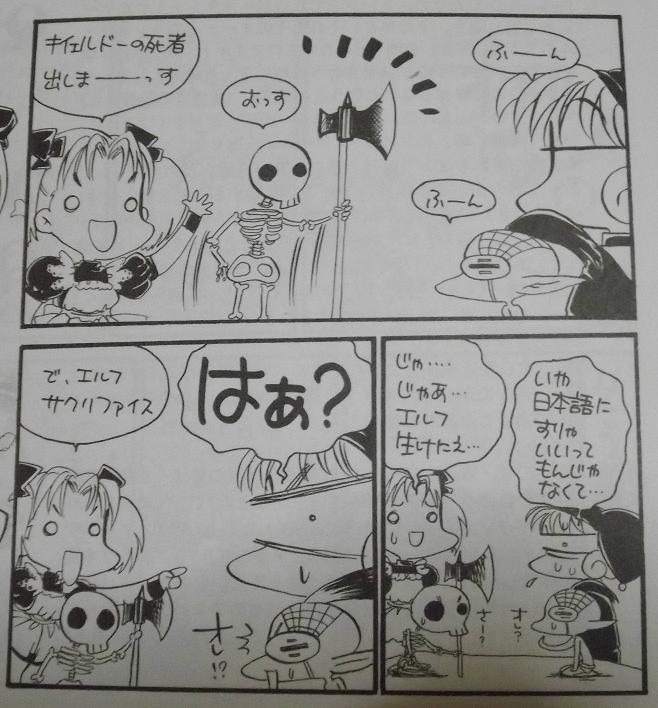 キイェルドーの死者
出しまーーっす
おっす
ふーーん
ふーん
で、エルフ
サクリファイス
はぁ?
オレ!?
じゃ‥‥
じゃあ…
エルフ
生けにえ…
いや
日本語に
すりゃ
いいって
もんじゃ
なくて…
さー?